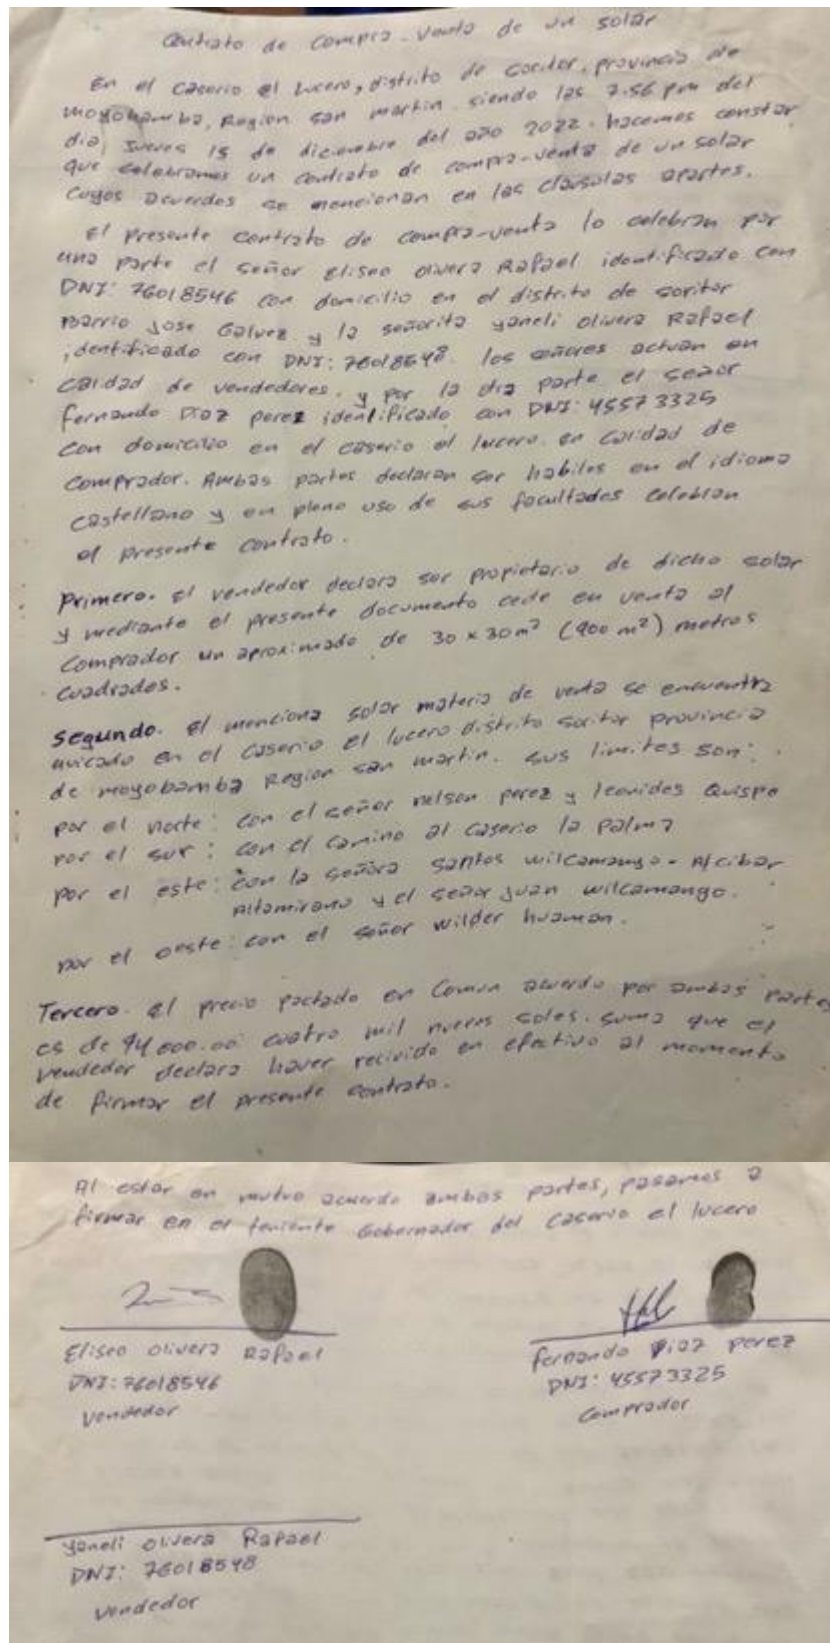 Contrato de compra-venta de un solar
En el caserio el lucero, distrito de soritor, provincia de
moyobamba, Region san martin. siendo las 7.56 pm del
dia, Jueves 15 de diciembre del año 2022. hacemos constar
que celebramos un contrato de compra-venta de un solar
cuyos acuerdos se mencionan en las clausulas apartes.
El presente contrato de compra-venta lo celebran por
una parte el señor Eliseo olivera Rafael identificado con
DNI: 76018546 con domicilio en el distrito de soritor
Barrio Jose Galvez y la señorita yaneli olivera Rafael
identificado con DNI: 76018548. los señores actuan en
calidad de vendedores. y por la otra parte el señor
fernando Diaz perez identificado con DNI: 45573325
con domicilio en el caserio el lucero. en calidad de
comprador. Ambas partes declaran ser habiles en el idioma
castellano y en pleno uso de sus facultades celebran
el presente contrato.
Primero. El vendedor declara ser propietario de dicho solar
y mediante el presente documento cede en venta al
comprador un aproximado de 30 x 30 m² (900 m²) metros
cuadrados.
Segundo. El menciona solar materia de venta se encuentra
uvicado en el caserio el lucero distrito soritor provincia
de moyobamba Region san martin. sus limites son:
por el norte: con el señor nelson perez y leonides Quispe
por el sur: con el camino al caserio la palma
por el este: con la señora santos wilcamango - Alcibar
Altamirano y el señor juan wilcamango.
por el oeste: con el señor wilder huaman.
Tercero. El precio pactado en comun acuerdo por ambas partes
es de 4000.00 cuatro mil nuevos soles. suma que el
vendedor declara haver recivido en efectivo al momento
de firmar el presente contrato.
Al estar en mutuo acuerdo ambas partes, pasamos a
firmar en el teniente Gobernador del caserio el lucero
Eliseo olivera Rafael
DNI: 76018546
vendedor
fernando Diaz perez
DNI: 45573325
comprador
yaneli olivera Rafael
DNI: 76018548
vendedor